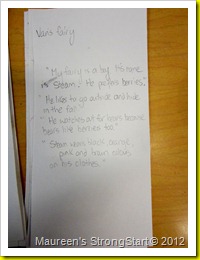 Van's fairy
"My fairy is a boy. His name
is Steam." "He prefers berries."
"He likes to go outside and hide
in the fog."
"He watches out for bears because
bears like berries too."
"Steam wears black, orange
pink and brown colours
on his clothes."
Maureen's StrongStart © 2012